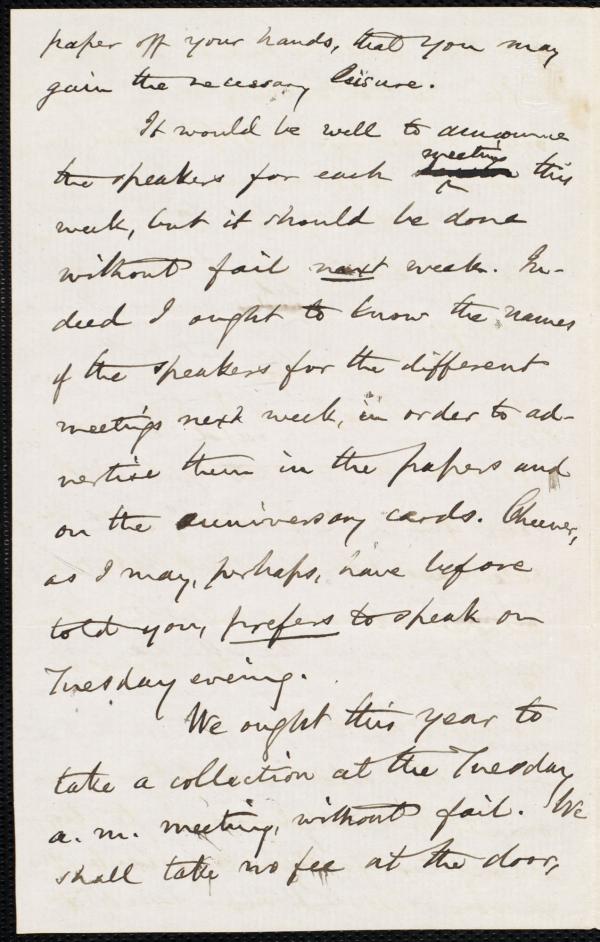 paper off your hands, that you may
gain the necessary leisure.
It would be well to announce
the speakers for each meeting this
week, but it should be done
without fail next week. In-
deed I ought to know the names
of the speakers for the different
meetings next week, in order to ad-
vertise them in the papers and
on the anniversary cards. Cheever,
as I may, perhaps, have before
told you, prefers to speak on
Tuesday evening.
We ought this year to
take a collection at the Tuesday
a. m. meeting, without fail. We
shall take no fee at the door,